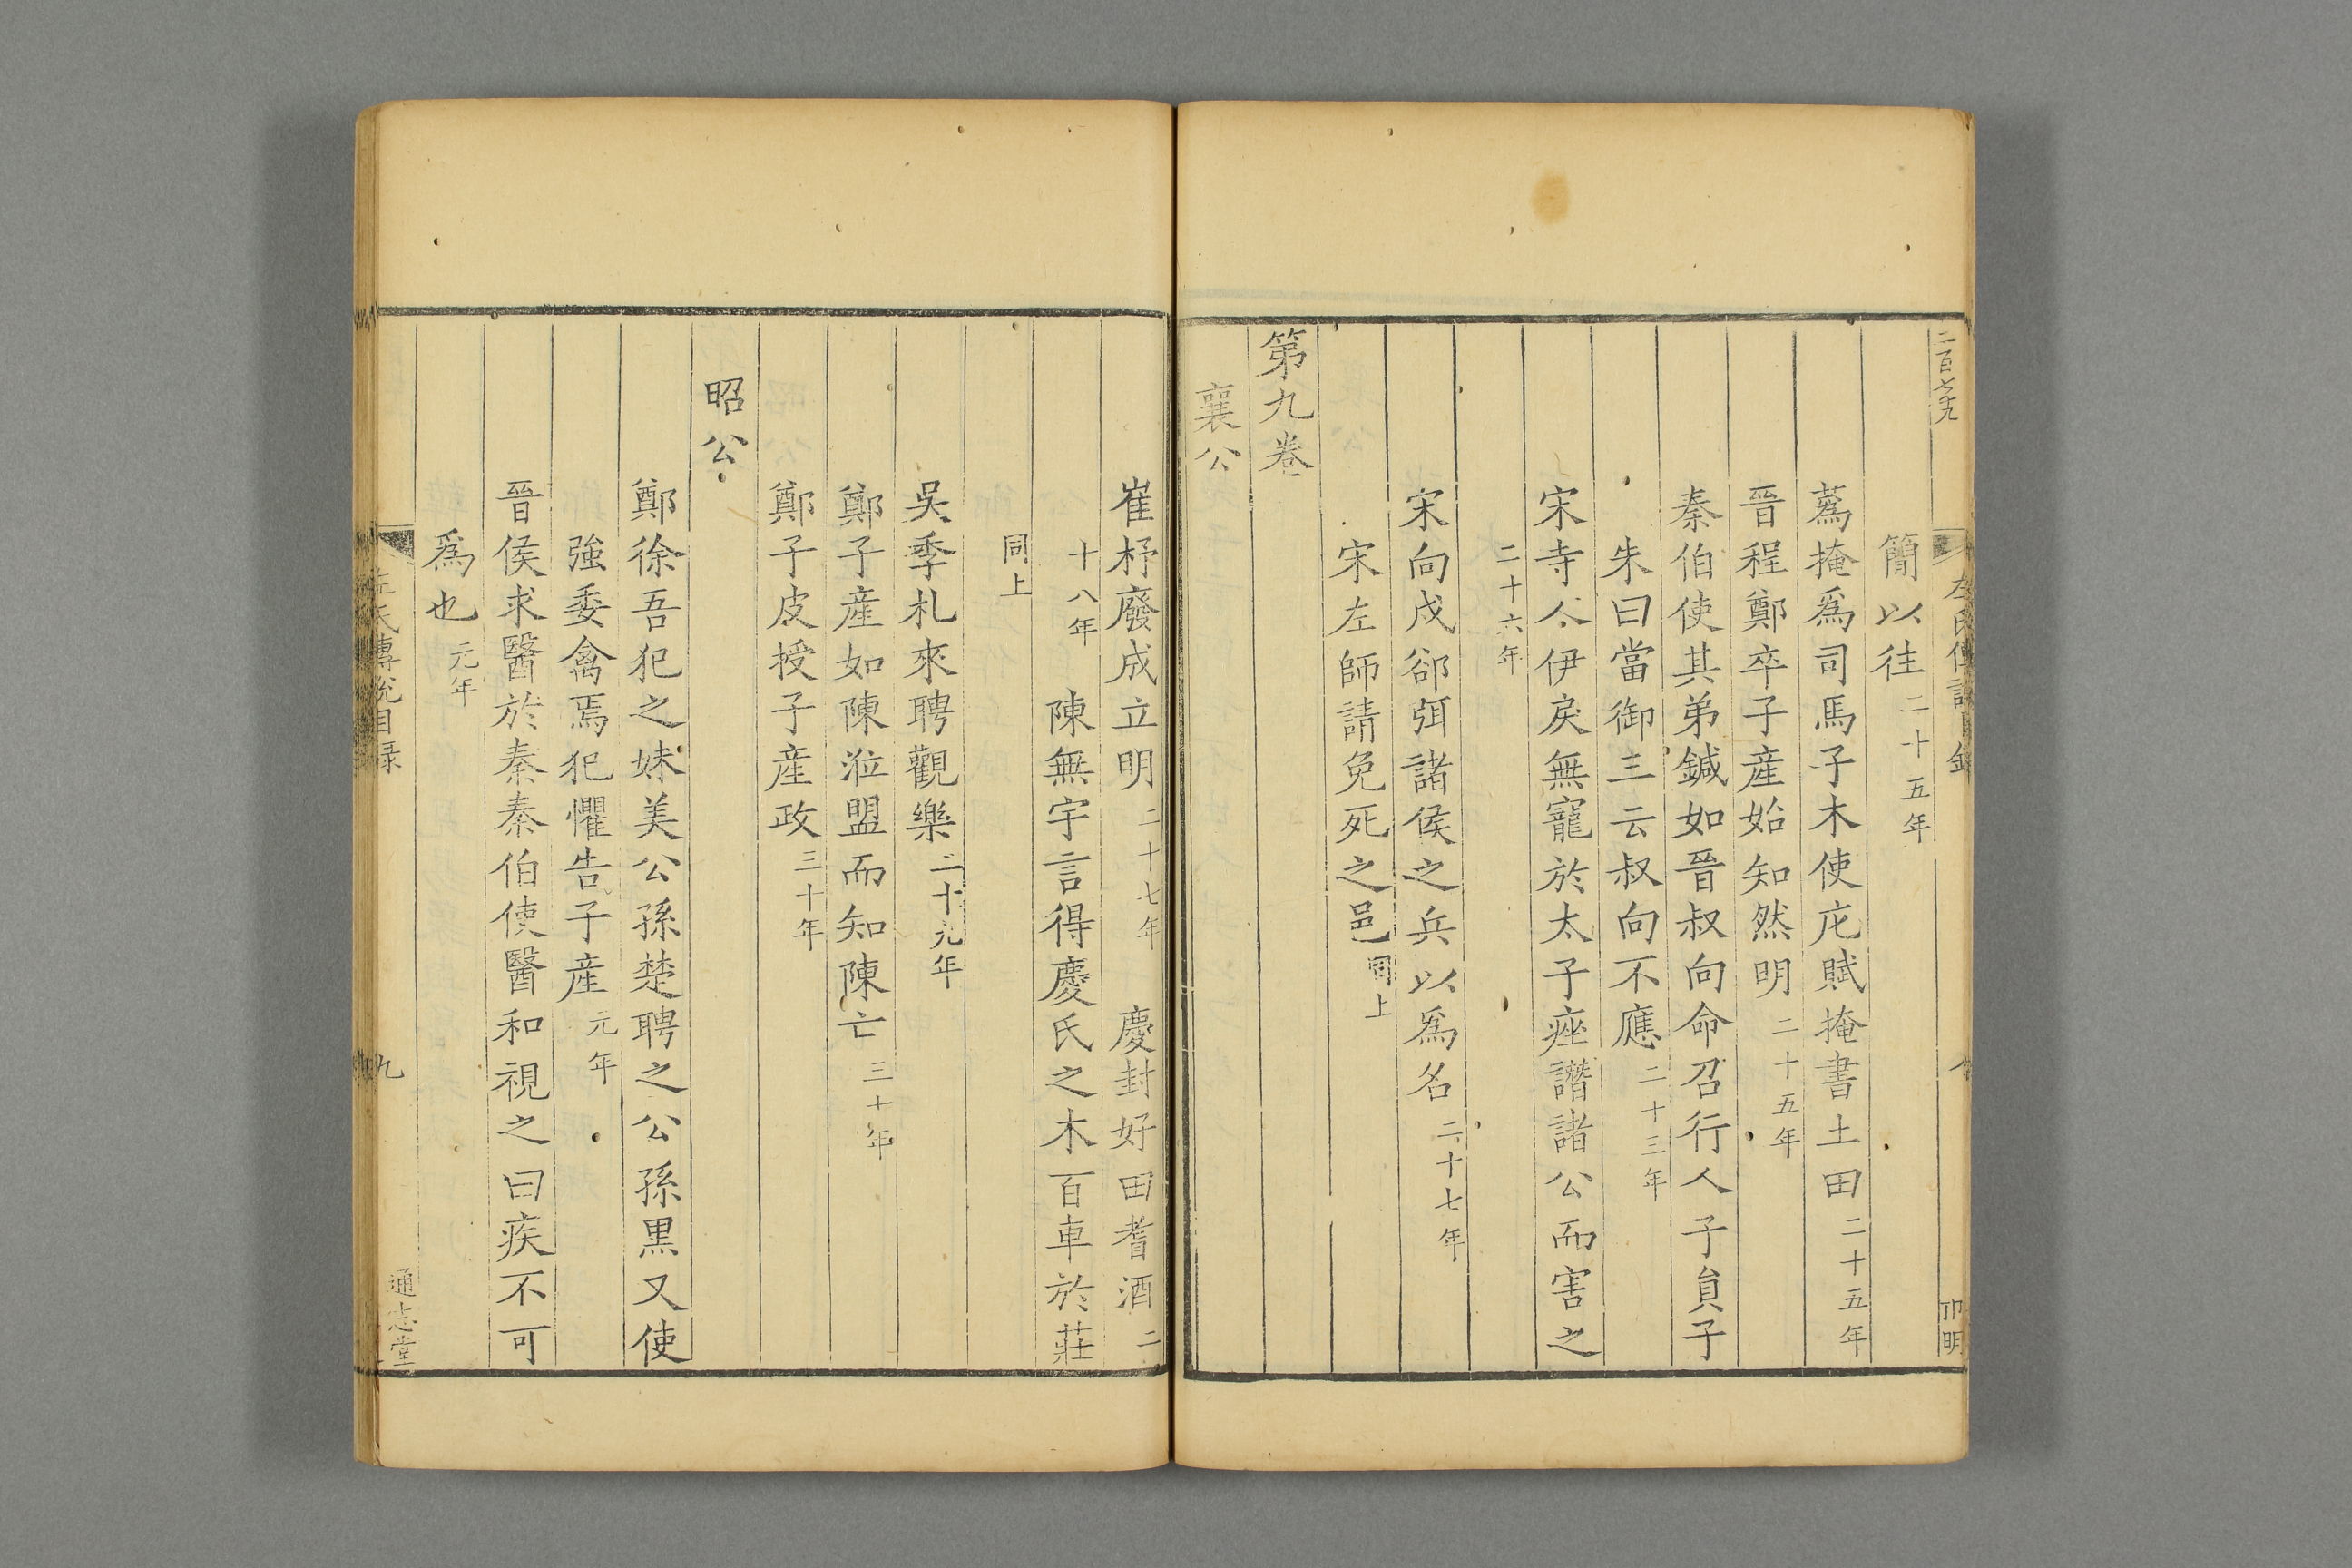 二百七十九
左氏傳說目錄
簡以往二十五年
蒍掩為司馬子木使庀賦掩書土田二十五年
晉程鄭卒子産始知然明二十五年
秦伯使其弟鍼如晉叔向命召行人子員子
朱曰當御三云叔向不應二十三年
宋寺人伊戾無寵於太子痤譖諸公而害之
二十六年
宋向戌郤弭諸侯之兵以爲名二十七年
宋左師請免死之邑同上
第九卷
襄公
崔杼廢成立明二十七年 慶封好田耆酒二
十八年 陳無宇言得慶氏之木百車於莊
同上
吳季札來聘觀樂二十九年
鄭子産如陳涖盟而知陳亡三十年
鄭子皮授子産政三十年
昭公
鄭徐吾犯之妹美公孫楚聘之公孫黑又使
強委禽焉犯懼告子産元年
晉侯求醫於秦秦伯使醫和視之曰疾不可
爲也元年
左氏傳說目録
九
通志堂